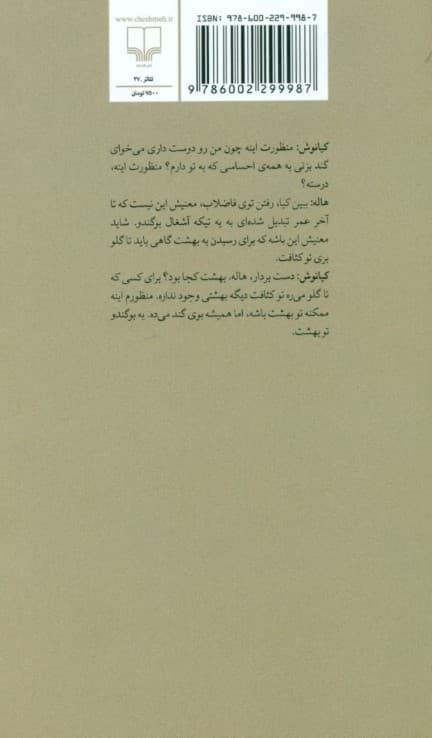 www.cheshmeh.ir
نشر چشمه
تئاتر ۲۷۰
۷۵۰۰ تومان
ISBN: 978-600-229-998-7
9 786002 299987
کیانوش: منظورت اینه چون من رو دوست داری می‌خوای
گند بزنی به همه‌ی احساسی که به تو دارم؟ منظورت اینه،
درسته؟
هاله: ببین کیا، رفتن توی فاضلاب، معنیش این نیست که تا
آخر عمر تبدیل شده‌ای به یه تیکه آشغال بوگندو. شاید
معنیش این باشه که برای رسیدن به بهشت گاهی باید تا گلو
بری تو کثافت.
کیانوش: دست بردار، هاله. بهشت کجا بود؟ برای کسی که
تا گلو می‌ره تو کثافت دیگه بهشتی وجود نداره. منظورم اینه
ممکنه تو بهشت باشه، اما همیشه بوی گند می‌ده. یه بوگندو
تو بهشت.